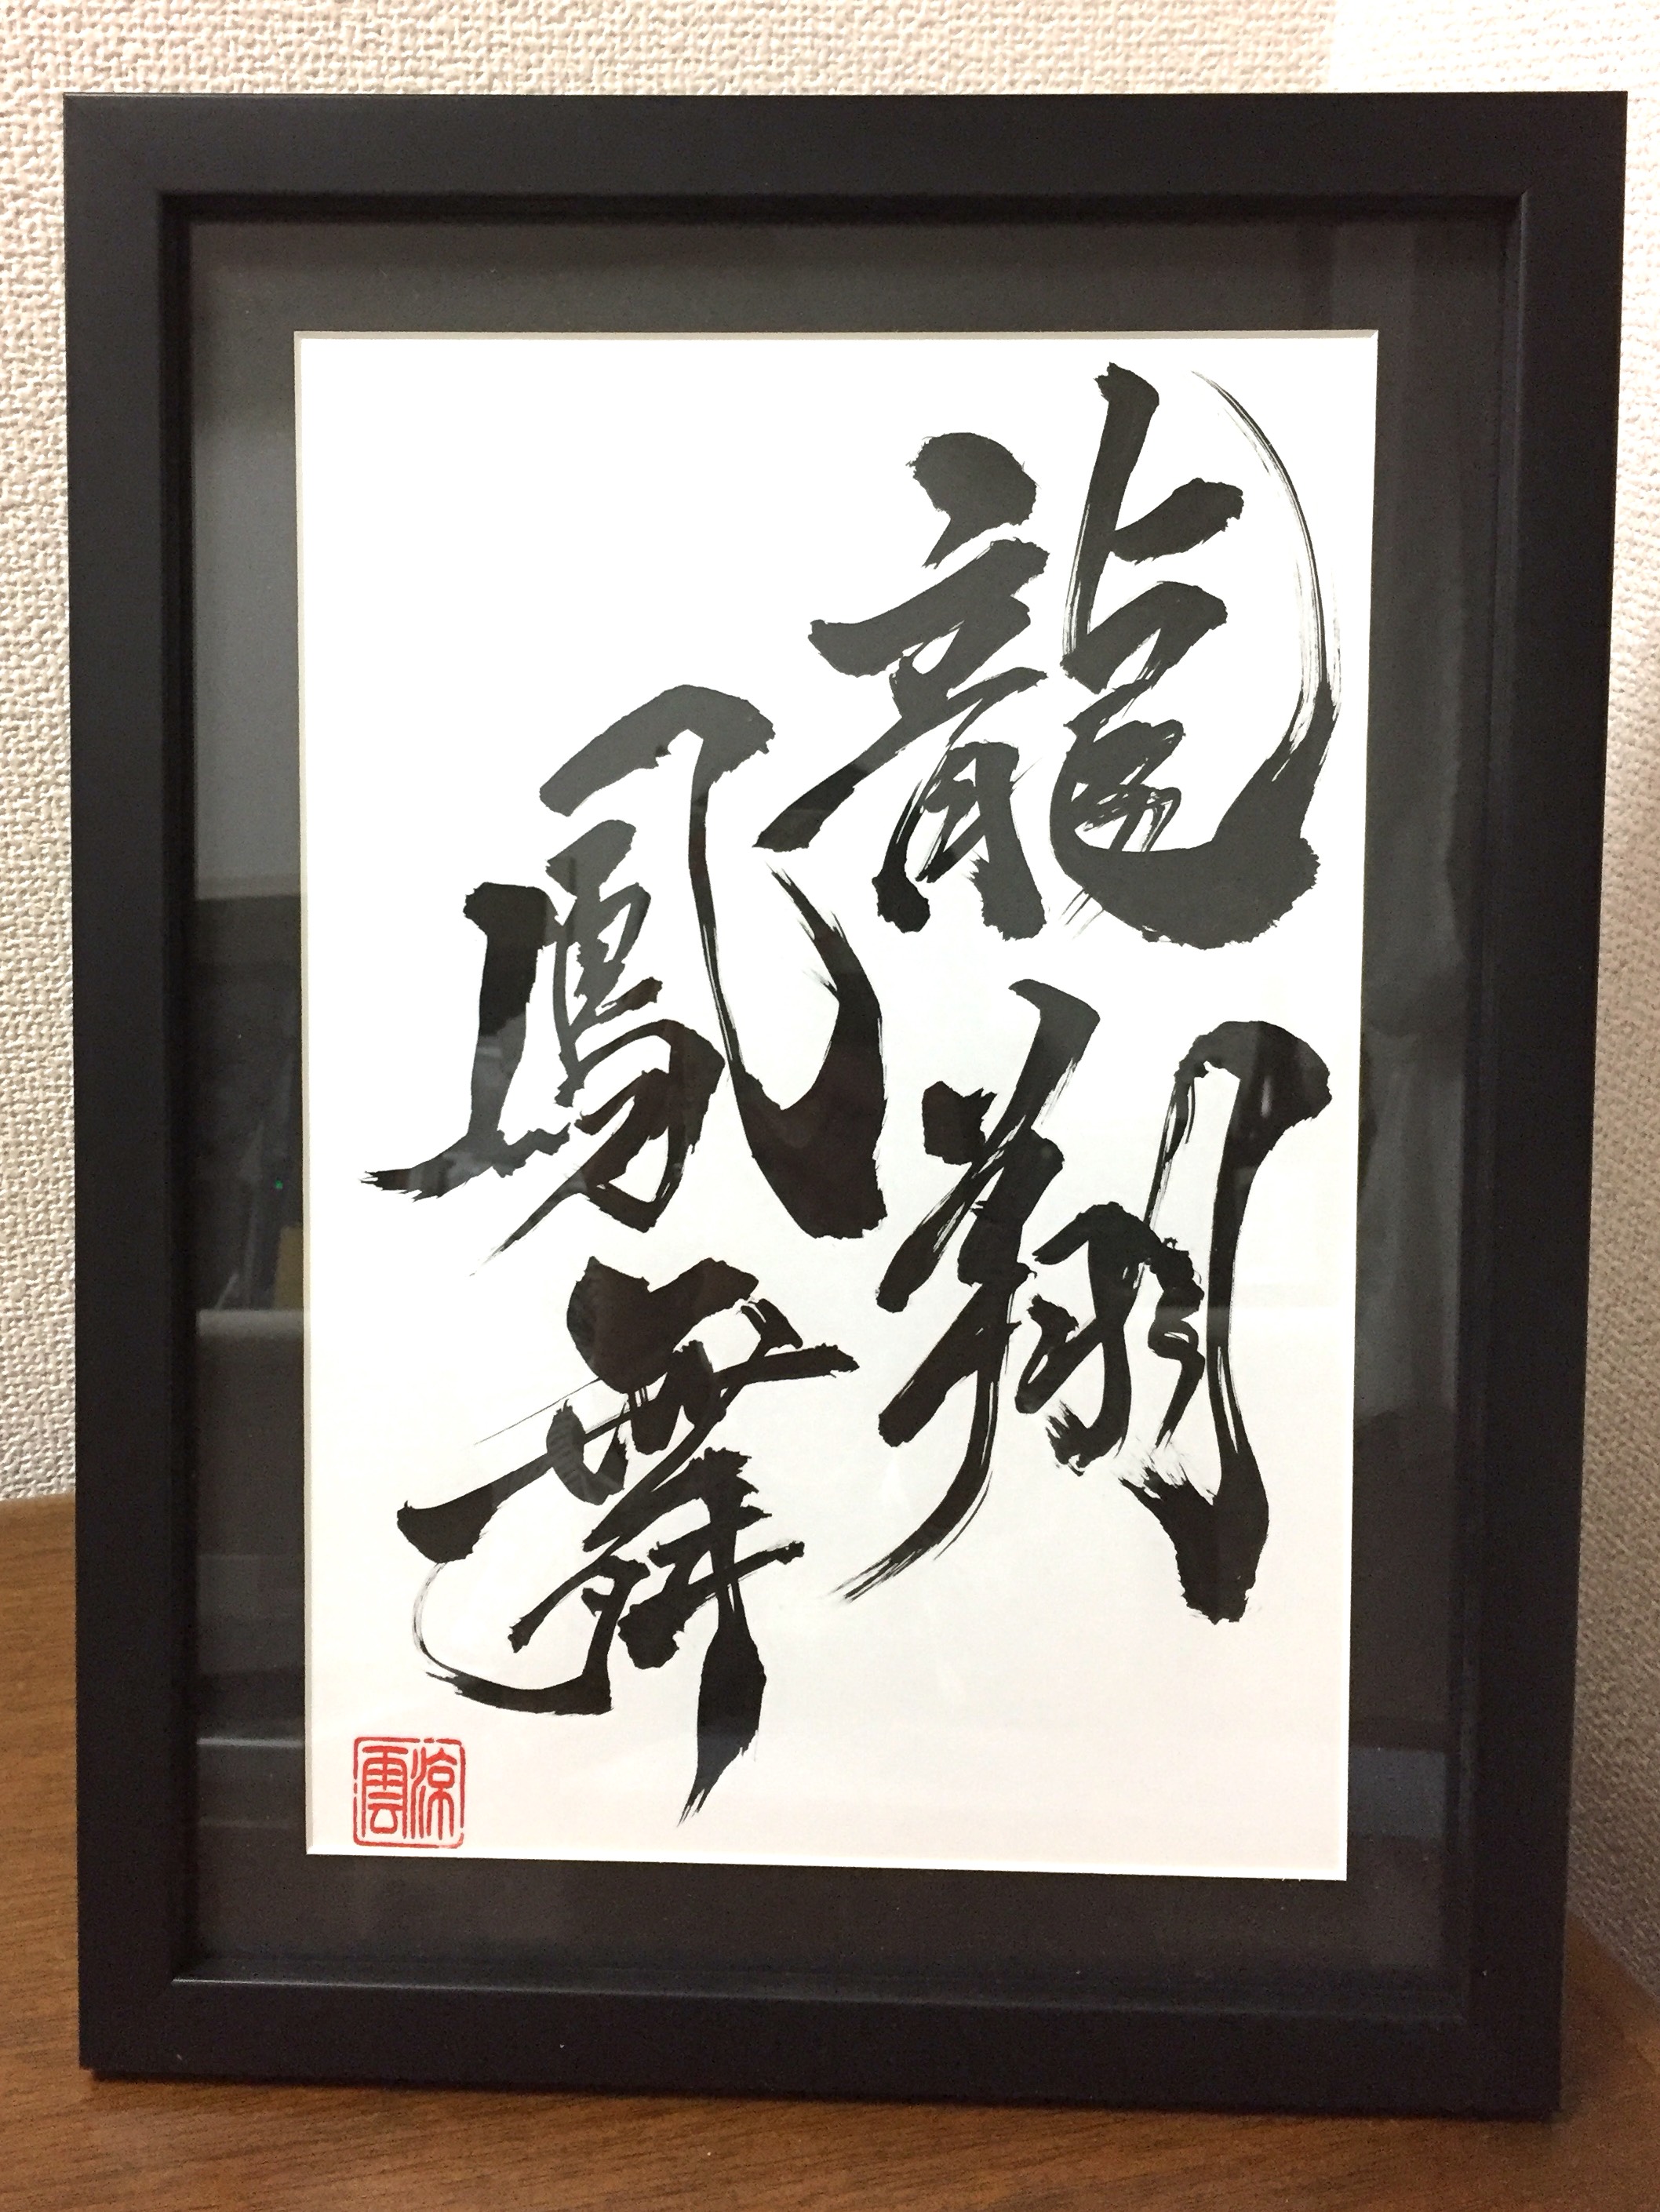 龍翔
鳳舞
涼雲